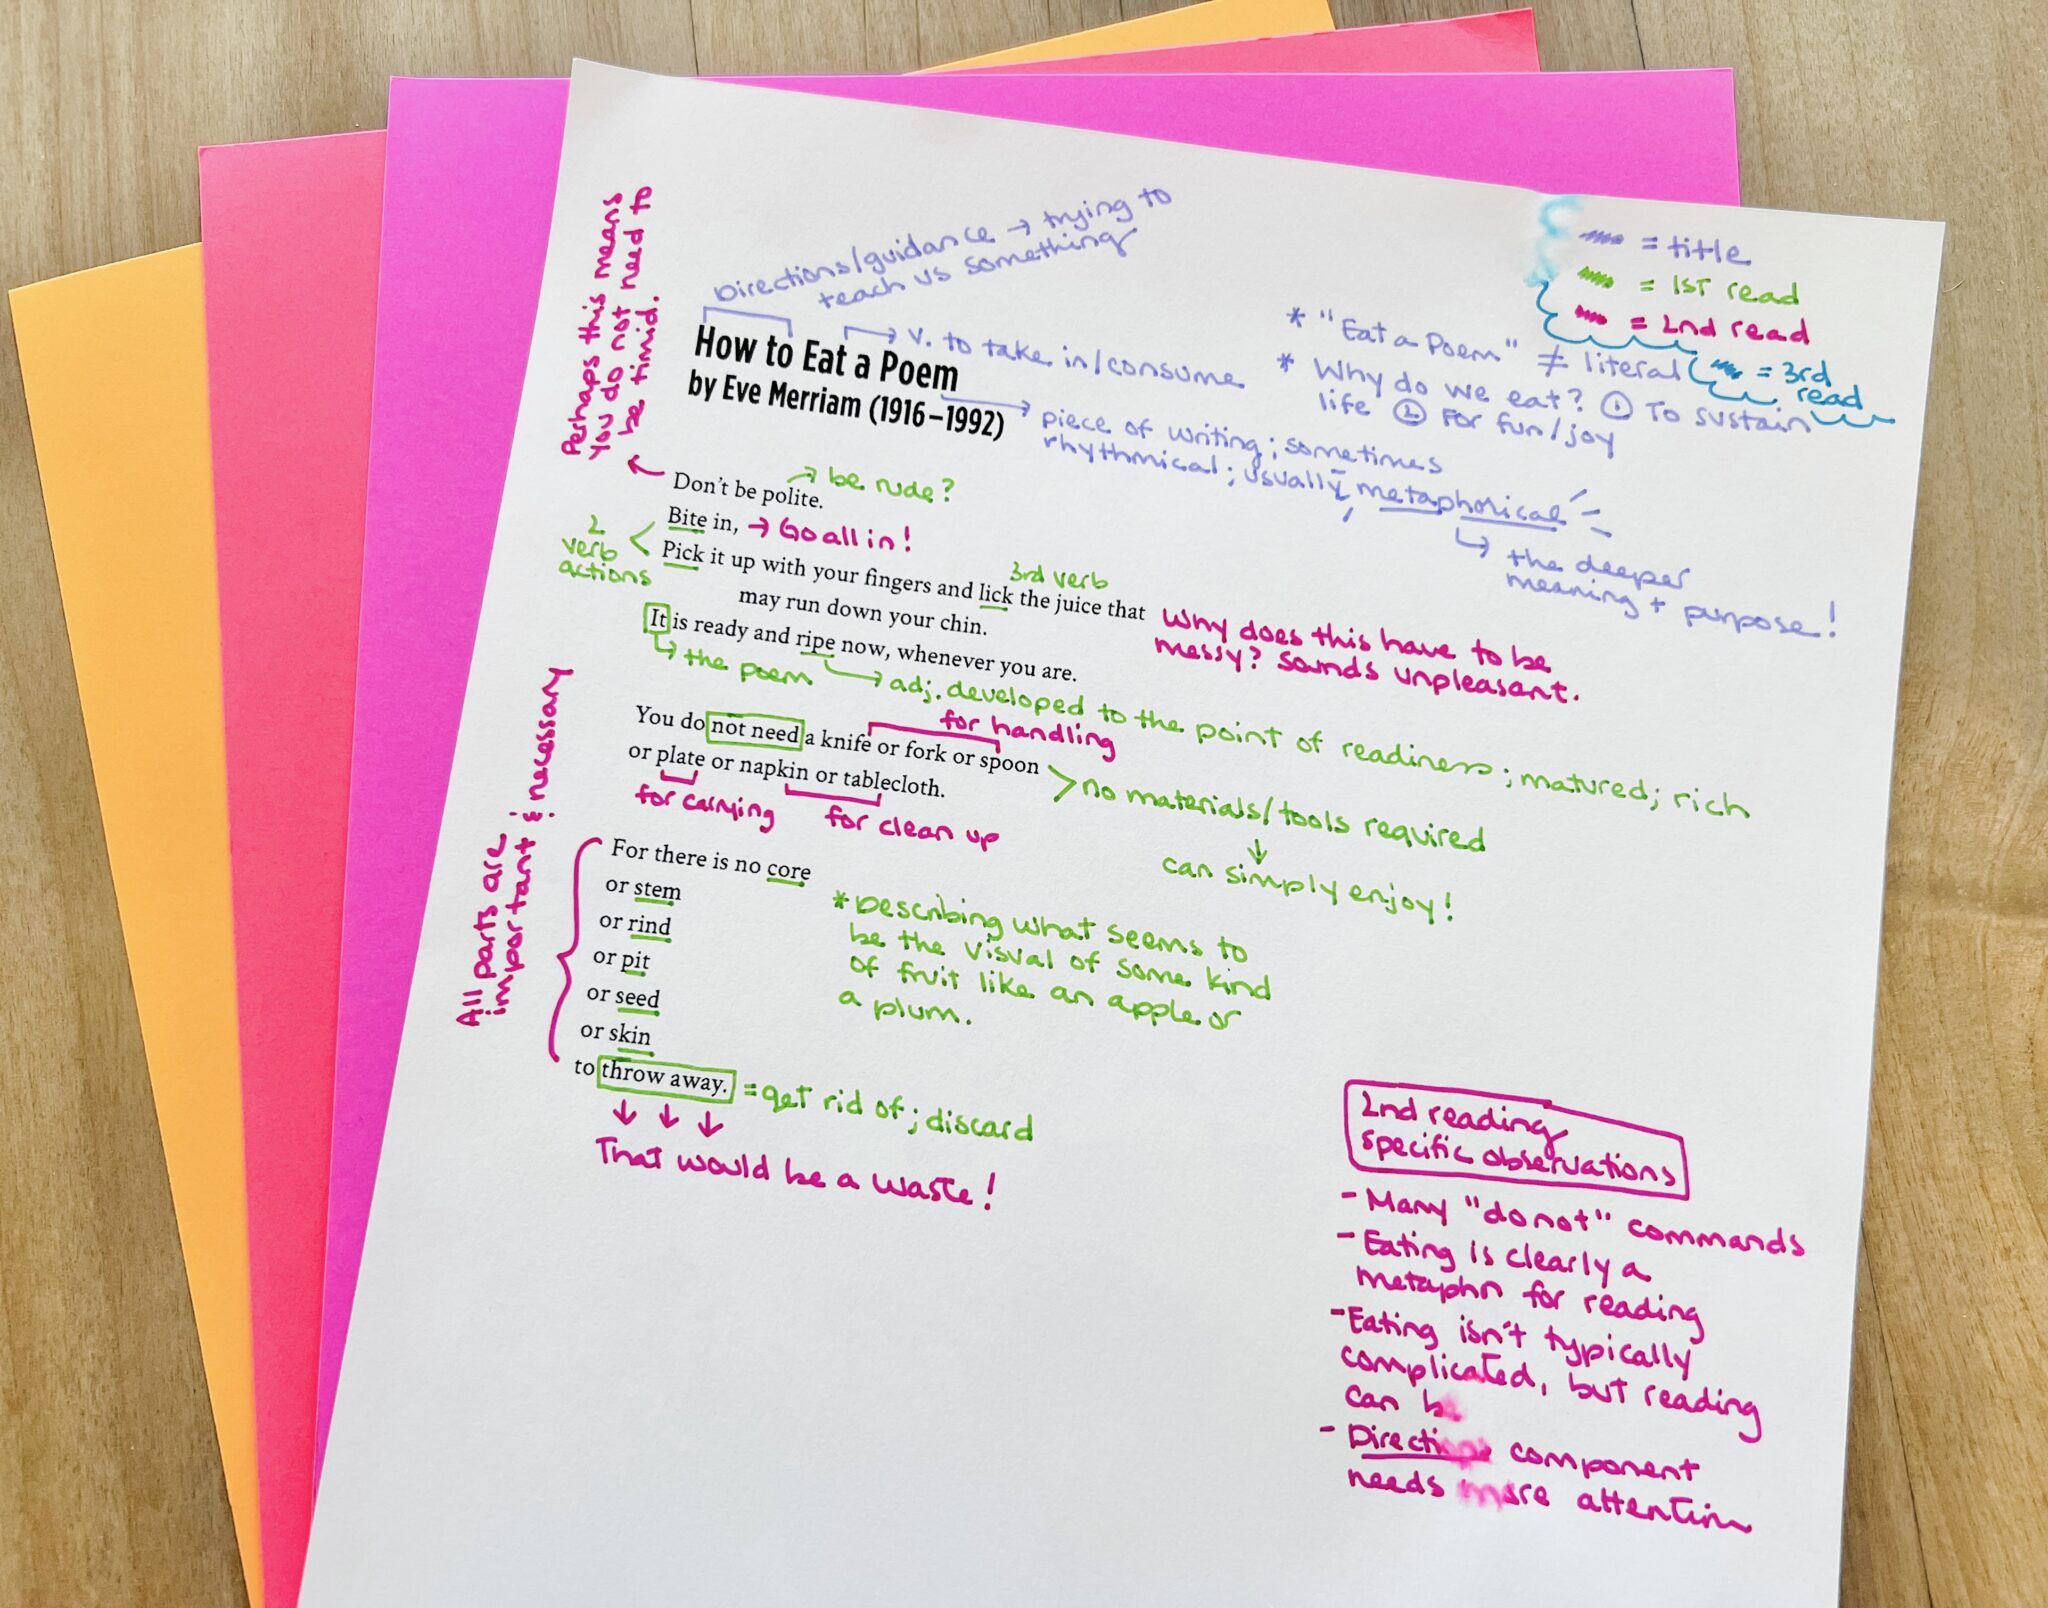 Directions/guidance → trying to
teach us something
= title
= 1ST read
= 2nd read
= 3rd
read
Perhaps this means
you do not need to
be timid.
How to Eat a Poem
by Eve Merriam (1916–1992)
v. to take in/consume
* "Eat a Poem" ≠ literal
* Why do we eat? ① To sustain
life ② For fun/joy
piece of writing; sometimes
rhythmical; usually metaphorical
the deeper
meaning + purpose!
Don't be polite.
be rude?
Bite in,
→ Go all in!
2
verb
actions
Pick it up with your fingers and lick the juice that
3rd verb
may run down your chin.
Why does this have to be
messy? Sounds unpleasant.
It is ready and ripe now, whenever you are.
the poem
adj. developed to the point of readiness; matured; rich
for handling
You do not need a knife or fork or spoon
or plate or napkin or tablecloth.
for carrying
for clean up
no materials/tools required
↓
can simply enjoy!
All parts are
important & necessary
For there is no core
or stem
or rind
or pit
or seed
or skin
to throw away.
* Describing what seems to
be the visual of some kind
of fruit like an apple or
a plum.
= get rid of; discard
↓ ↓ ↓
That would be a waste!
2nd reading
specific observations
- Many "do not" commands
- Eating is clearly a
metaphor for reading
- Eating isn't typically
complicated, but reading
can be
- Directions component
needs more attention